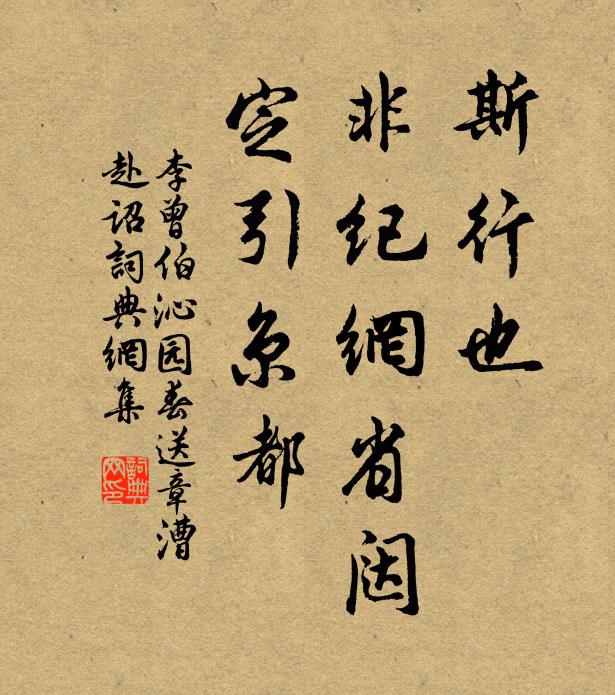 斯行也
非纪網省闼
定引京都
李曾伯沁园春送章漕
赴诏詞典網集
詞典
网印